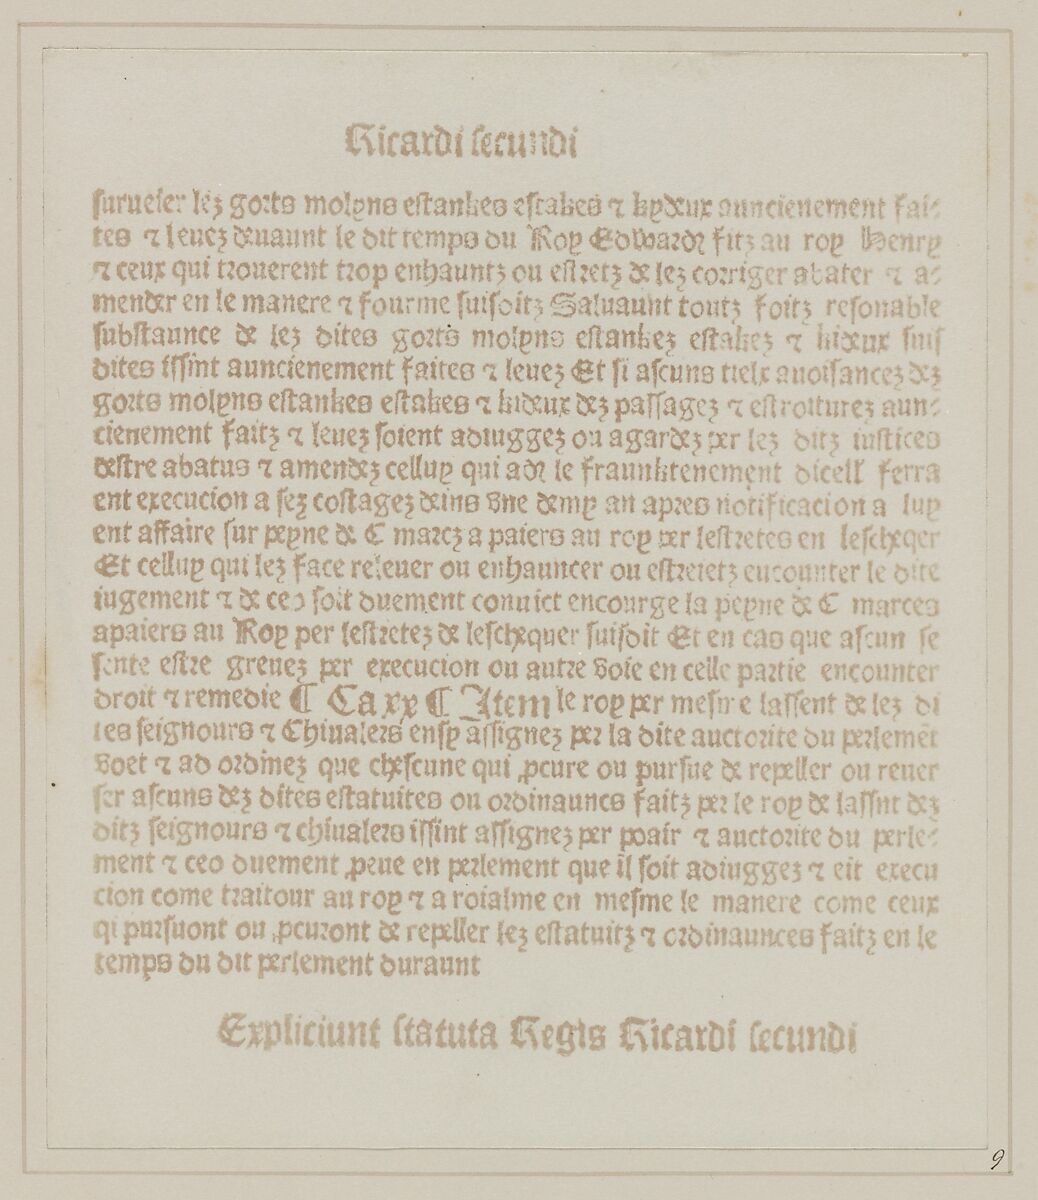 Ricardi secundi
surueier lez gorts molyns estankes estakes ⁊ kydeux auncienement fai⸗
tes ⁊ leuez deuaunt le dit temps du Roy Edwardꝫ fitz au roy Henry
⁊ ceux qui trouerent trop enhauntz ou estretz de lez corriger abater ⁊ a⸗
mender en le manere ⁊ fourme suisditz Saluaunt toutz foitz resonable
substaunce de lez dites gorts molyns estankez estakez ⁊ kideux suis
dites issint auncienement faites ⁊ leuez Et si ascuns tielx anoisancez dez
gorts molyns estankes estakes ⁊ kideux dez passagez ⁊ estroiturez aun⸗
cienement faitz ⁊ leuez soient adiuggez ou agardez per lez ditz iustices
destre abatus ⁊ amendez celluy qui adꝫ le fraunktenement dicell ferra
ent execucion a sez costagez deins vne demy an apres notificacion a luy
ent affaire sur peyne de C marcz a paiers au roy per lestretes en lescheqer
Et celluy qui lez face releuer ou enhauncer ou estreietz encounter le dite
iugement ⁊ de ceo soit duement conuict encourge la peyne de C marces
apaiers au Roy per lestretez de leschequer suisdit Et en cas que ascun se
sente estre greuez per execucion ou autre voie en celle partie encounter
droit ⁊ remedie ¶ Ca xx ¶ Item le roy per mesme lassent de lez di
tes seignours ⁊ Chiualers ensy assignez per la dite auctorite du perlemēt
voet ⁊ ad ordinez que chescune qui ꝓcure ou pursue de repeller ou reuer
ser ascuns dez dites estatuites ou ordinauncs faitz per le roy de lassnt dez
ditz seignours ⁊ chiualers issint assignez per poair ⁊ auctorite du perle⸗
ment ⁊ ceo duement ꝓeue en perlement que il soit adiuggez ⁊ eit execu
cion come traitour au roy ⁊ a roialme en mesme le manere come ceux
qi pursuont ou ꝓcuront de repeller lez estatuitz ⁊ ordinaunces faitz en le
temps du dit perlement duraunt
Expliciunt statuta Regis Ricardi secundi
9